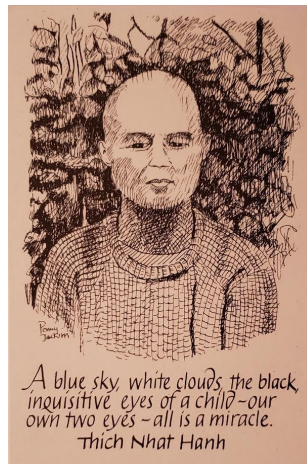 Penny
Jackim
A blue sky, white clouds, the black,
inquisitive eyes of a child - our
own two eyes - all is a miracle.
Thich Nhat Hanh